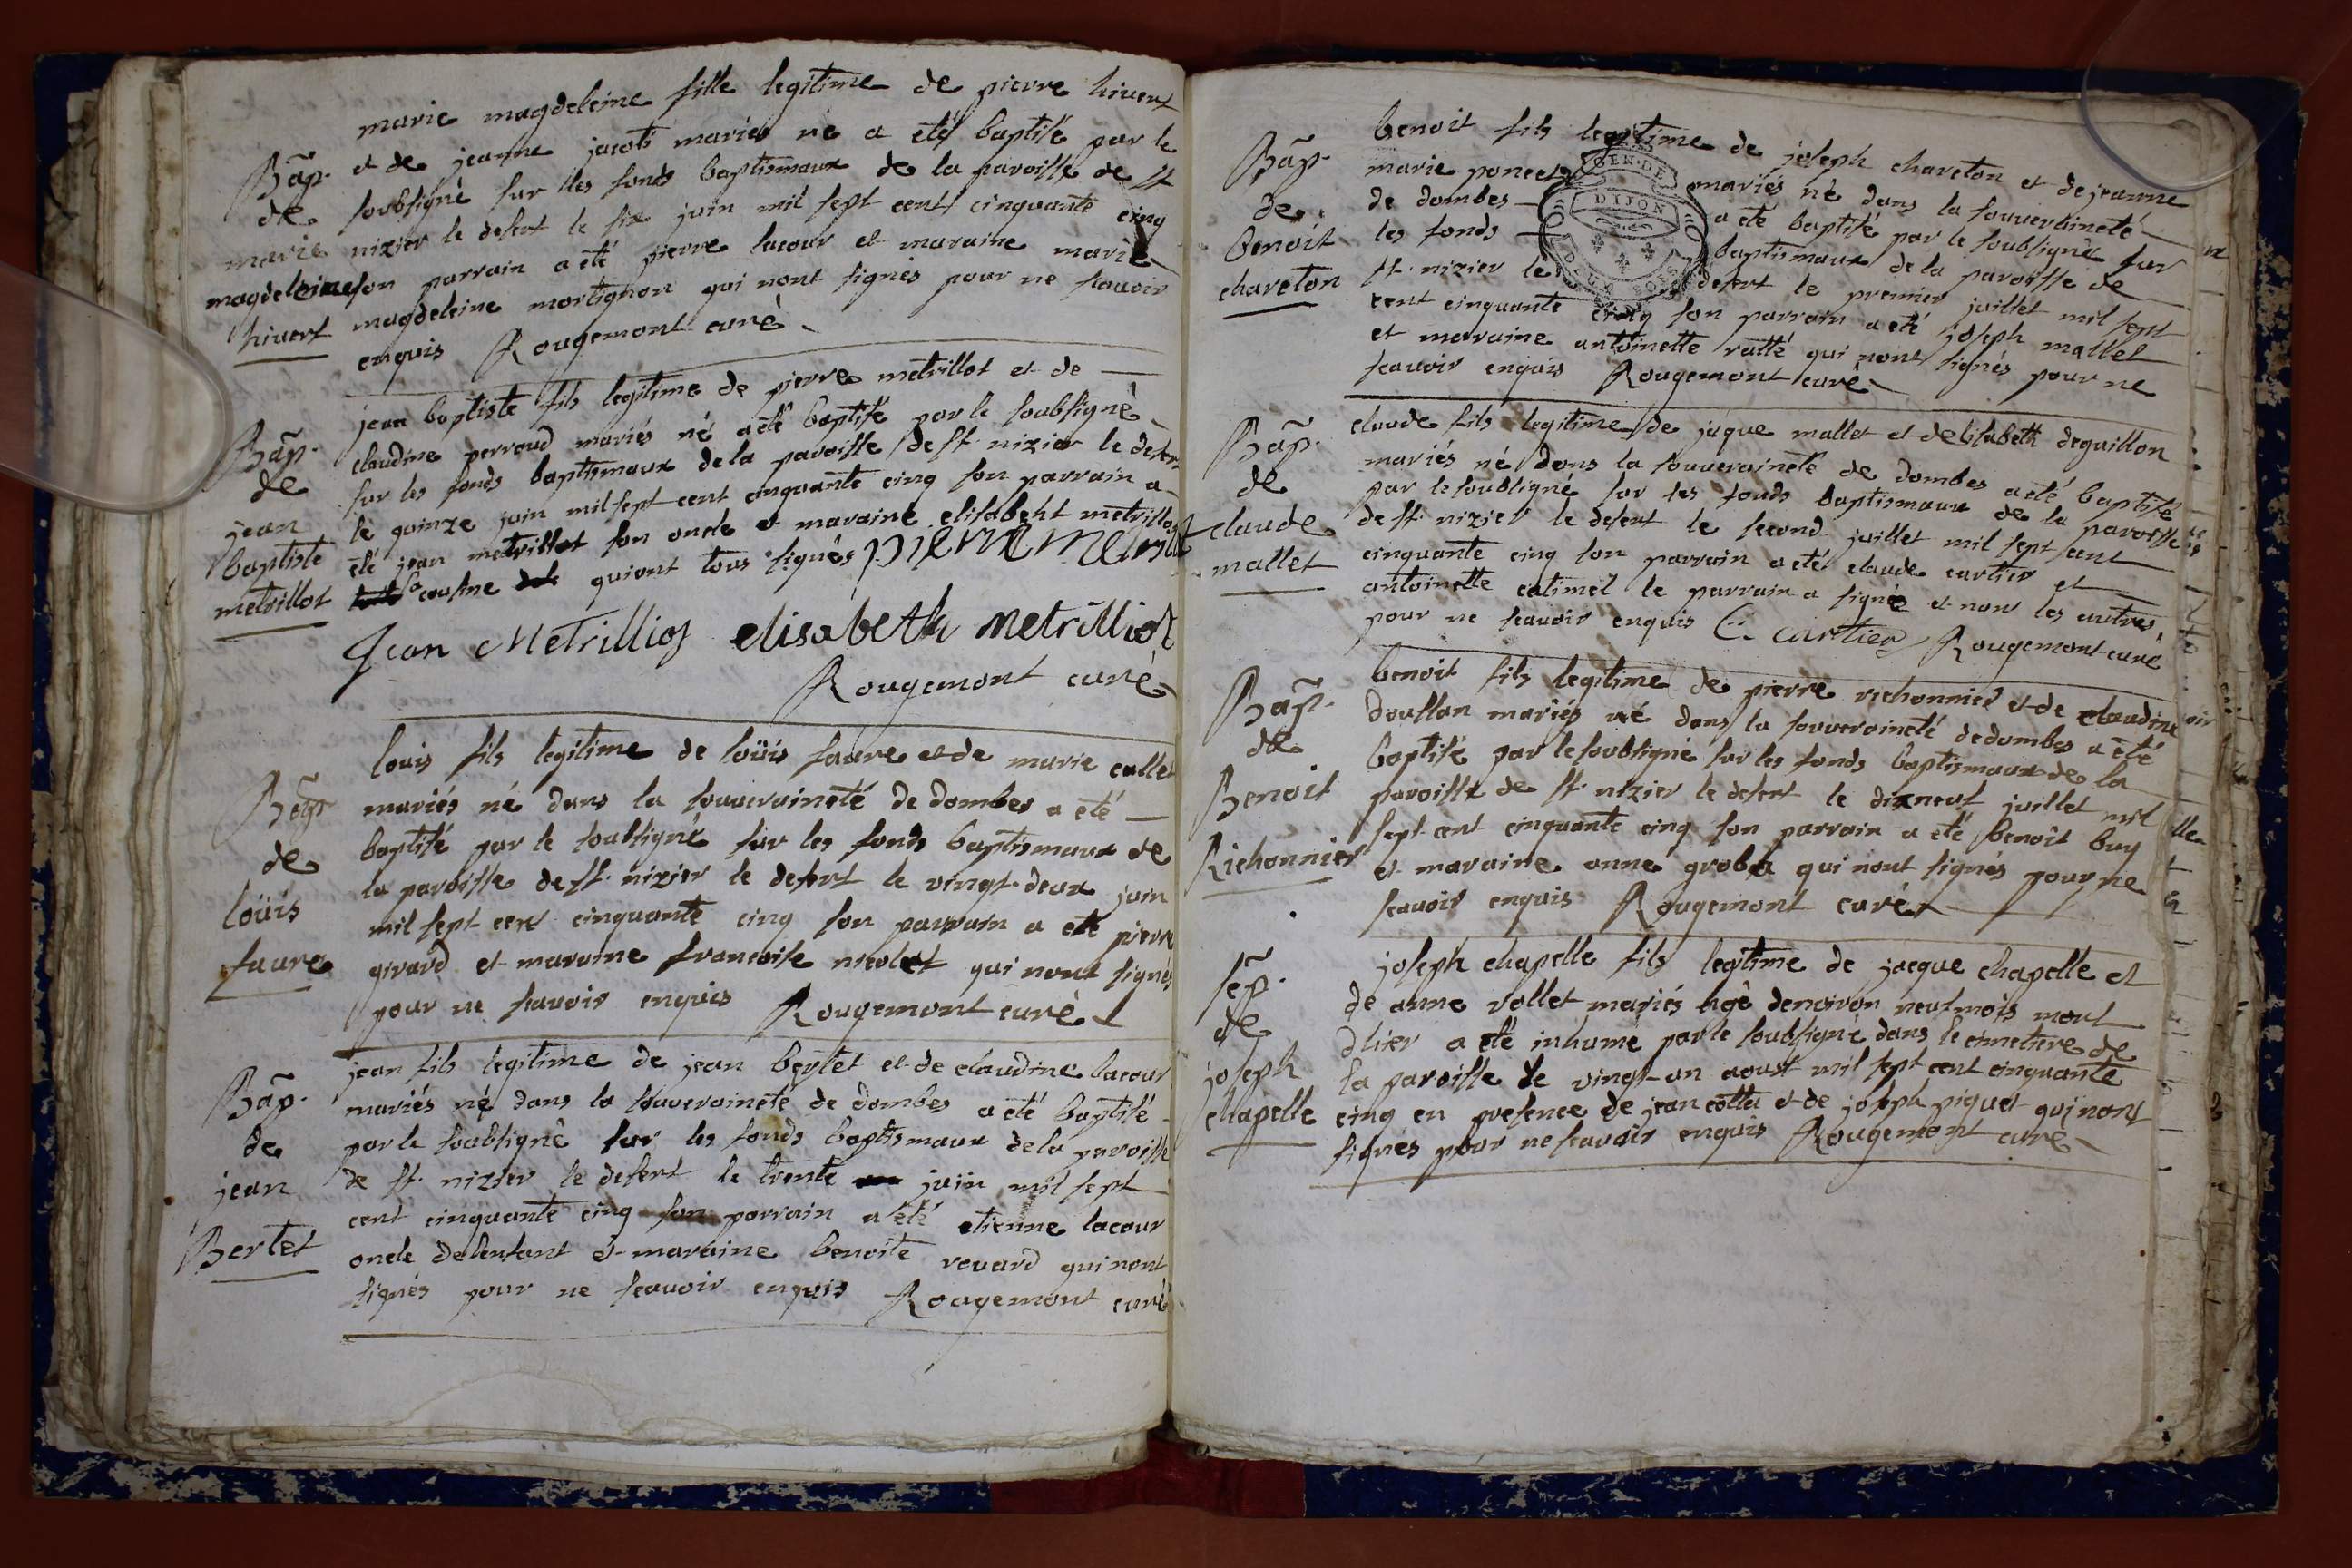 marie magdeleine fille legitime de pierre hivert
et de jeanne jacoti mariés né a eté baptisé par le
soubsigné sur les fonds baptismaux de la paroisse de st
nizier le desert le six juin mil sept cent cinquante cinq
son parrain a eté pierre lacour et maraine marie
magdeleine mortignon qui nont signés pour ne scavoir
enquis Rougemont curé
Bap.
de
marie
magdeleine
hivert
jean baptiste fils legitime de pierre metrillot et de
claudine perraud mariés né a eté baptisé par le soubsigné
sur les fonds baptismaux de la paroisse de st. nizier le desert
le quinze juin mil sept cent cinquante cinq son parrain a
eté jean metrillot son oncle et maraine elisabeht metrillot
sa cousine qui ont tous signés pierre metrillot
Jean Metrilliot elisabeth Metrilliot
Rougemont curé
Bap.
de
jean
baptiste
metrillot
louis fils legitime de loüis faure et de marie callet
mariés né dans la souveraineté de dombes a eté
baptisé par le soubsigné sur les fonds baptismaux de
la paroisse de st. nizier le desert le vingt-deux juin
mil sept cent cinquante cinq son parrain a eté pierre
girard et maraine francoise nicolet qui nont signés
pour ne scavoir enquis Rougemont curé
Bap
de
loüis
faure
jean fils legitime de jean bertet et de claudine lacour
mariés né dans la souveraineté de dombes a eté baptisé
par le soubsigné sur les fonds baptismaux de la paroisse
de st. nizier le desert le trente juin mil sept
cent cinquante cinq son parrain a eté etienne lacour
oncle delenfant et maraine benoite revard qui nont
signés pour ne scavoir enquis Rougemont curé
Bap.
de
jean
Bertet
benoit fils legitime de joseph chareton et de jeanne
marie poncet mariés né dans la souveraineté
de dombes a eté baptisé par le soubsigné sur
les fonds baptismaux de la paroisse de
st. nizier le desert le premier juillet mil sept
cent cinquante cinq son parrain a eté joseph mallet
et maraine antoinette ratté qui nont signés pour ne
scavoir enquis Rougemont curé
GEN. DE
DIJON
Bap.
de
benoit
chareton
claude fils legitime de jaque mallet et delisabeth deguillon
mariés né dans la souveraineté de dombes a eté baptisé
par le soubsigné sur les fonds baptismaux de la paroisse
de st. nizier le desert le second juillet mil sept cent
cinquante cinq son parrain a eté claude cartier et
antoinette catimel le parrain a signé et non les autres
pour ne scavoir enquis C. Cartier Rougemont curé
Bap.
de
claude
mallet
benoit fils legitime de pierre richonnier et de claudine
doullan mariés né dans la souveraineté de dombes a eté
baptisé par le soubsigné sur les fonds baptismaux de la
paroisse de st. nizier le desert le dixneuf juillet mil
sept cent cinquante cinq son parrain a eté benoît buy
et maraine anne groba qui nont signés pour ne
scavoir enquis Rougemont curé
Bap.
de
Benoit
Richonnier
joseph chapelle fils legitime de jacque chapelle et
de anne vollet mariés agé denviron neuf mois mort
dhier a eté inhumé par le soubsigné dans le cimetiere de
la paroisse le vingt-un aoust mil sept cent cinquante
cinq en presence de jean cottin et de joseph piquet qui nont
signés pour ne scavoir enquis Rougemont curé
sep.
de
joseph
chapelle